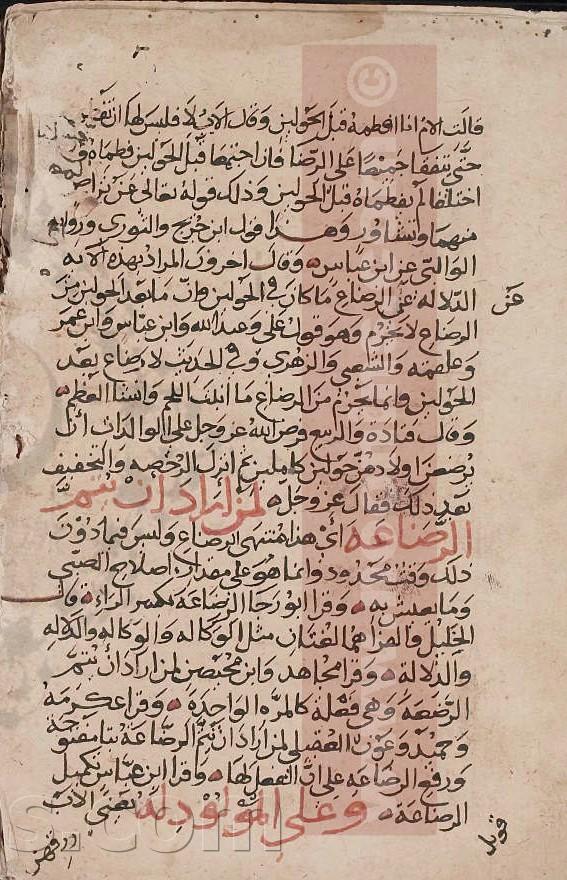 قالت الام انا افطمه قبل الحولين وقال الاب لا فليس لها ان تفطمه
حتى يتفقا جميعا على الرضا فان اجتمعا قبل الحولين فطماه وان
اختلفا لم يفطماه قبل الحولين وذلك قوله تعالى عن تراض
منهما وتشاور وهذا قول ابن جريج والثوري ورواية
الوالبي عن ابن عباس وقال اخرون المراد بهذه الايه
الدلاله على الرضاع ما كان في الحولين وان ما بعد الحولين من
عن
الرضاع لا يحرم وهو قول على وعبد الله وابن عباس وابن عمر
وعلقمه والشعبي والزهري وفي الحديث لا رضاع بعد
الحولين وانما يحرم من الرضاع ما انبت اللحم وانشا العظم
وقال قتادة والربيع فرض الله عز وجل على الوالدات ان
يرضعن اولادهن حولين كاملين ثم انزل الرخصه والتخفيف
بعد ذلك فقال عز وجل لمن اراد ان يتم
الرضاعه اي هذا منتهى الرضاع وليس فيما دون
ذلك وقت محدود وانما هو على مقدار اصلاح الصبي
وما يعيش به وقرا ابو رجا الرضاعة بكسر الراء قال
الخليل والفرا هما لغتان مثل الوكاله والوكاله والدلاله
والدلالة وقرا مجاهد وابن محيصن لمن اراد ان يتم
الرضعة وهي فعلة كالمره الواحدة وقرا عكرمة
وحميد وعون العقيلي لمن اراد ان تتم الرضاعة بتا مفتوحة
ورفع الرضاعه على ان الفعل لها وقرا ابن عباس تكميل
الرضاعة وعلى المولود له يعني الاب